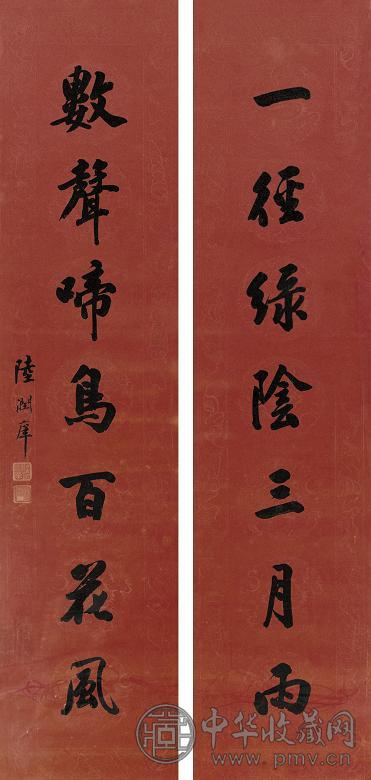 一徑綠陰三月雨
數聲啼鳥百花風
陸潤庠
中华收藏网
www.pmv.cn